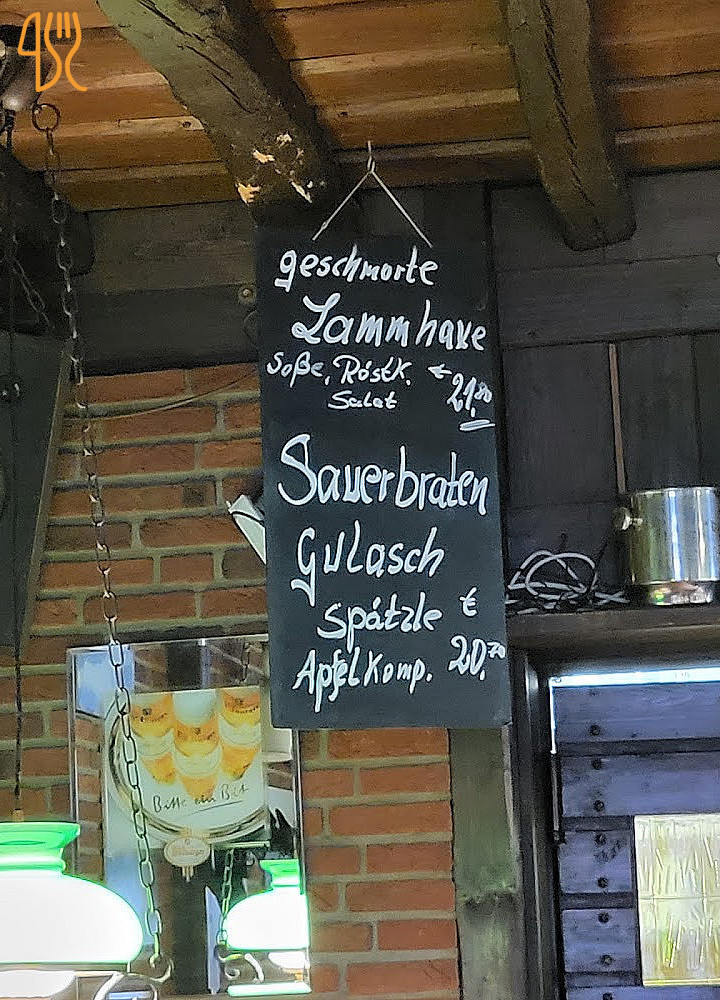 geschmorte
Lammhaxe
Soße, Röstk. €
Salat 21,80
Sauerbraten
Gulasch
Spätzle €
Apfelkomp. 20,70
Bitte ein Bit